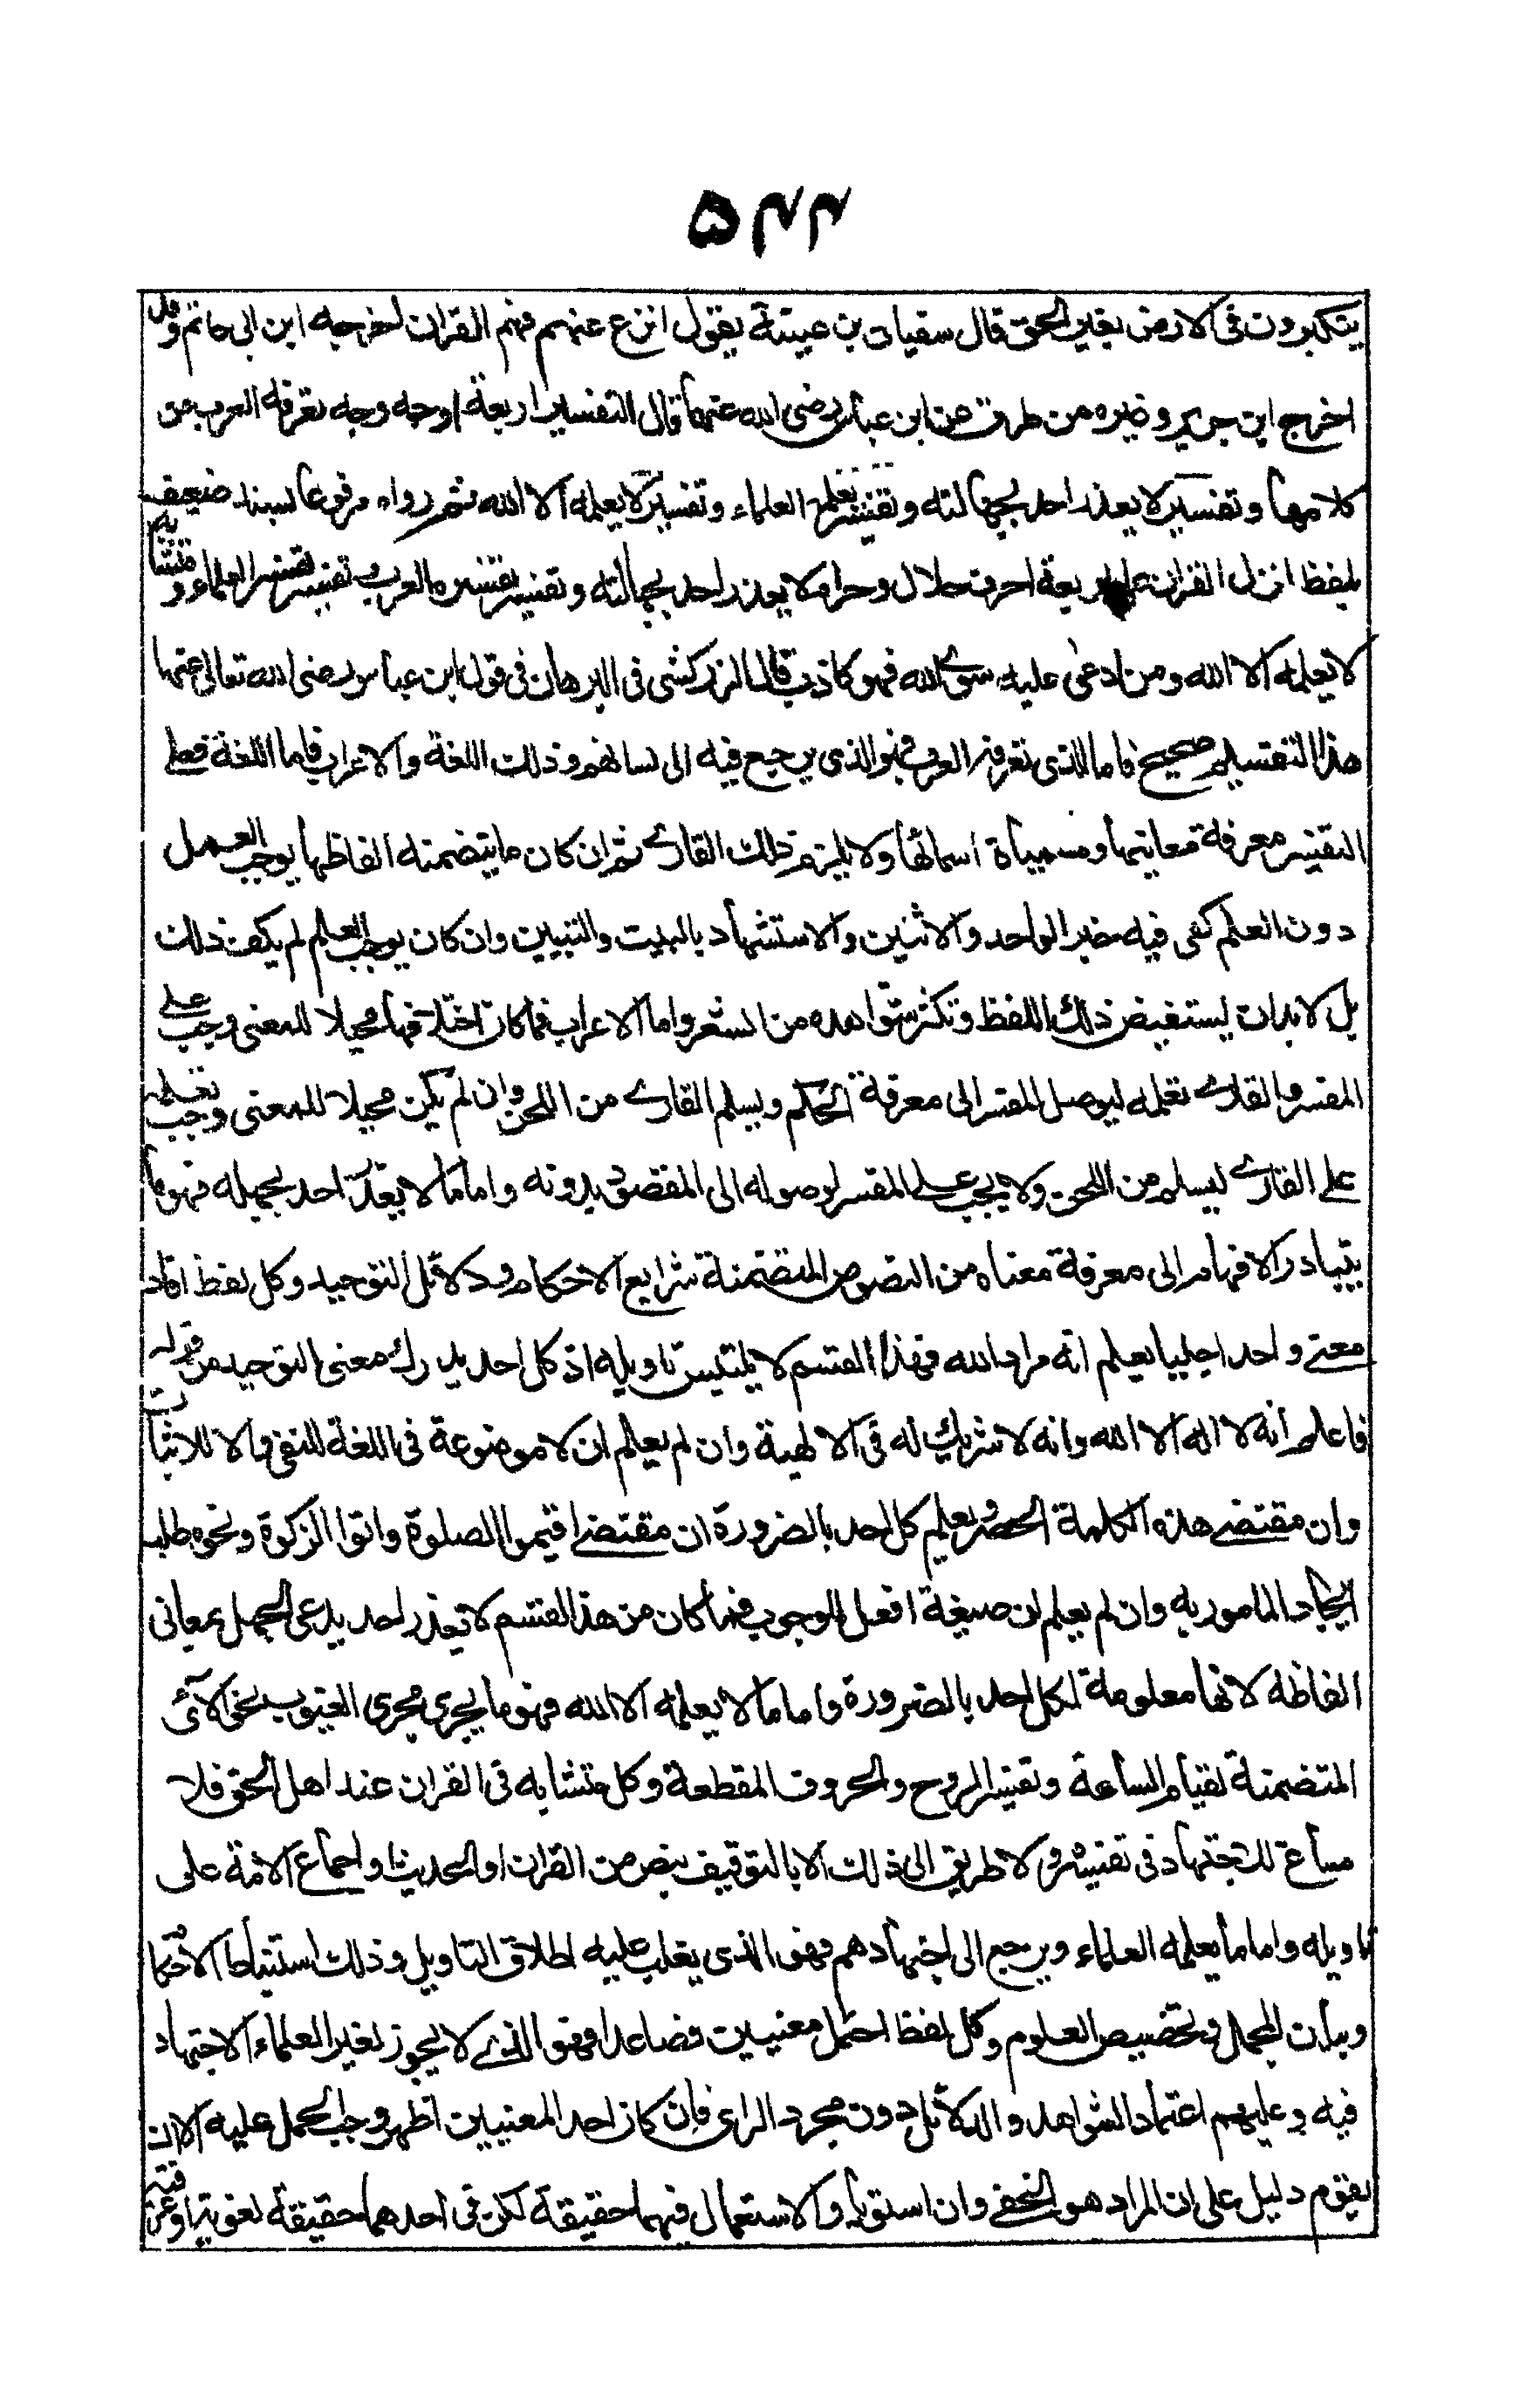 ۵۴۴
يتكبرون فى الارض بغير الحق قال سفيان بن عيينة يقول انزع عنهم فهم القران اخرجه ابن ابى حاتم وقد
اخرج ابن جرير وغيره من طرق عن ابن عباس رضى الله عنهما قال التفسير اربعة اوجه وجه تعرفه العرب من
كلامها وتفسير لا يعذر احد بجهالته وتفسير تعلمه العلماء وتفسير لا يعلمه الا الله ثم رواه مرفوعا بسند ضعيف
بلفظ انزل القران على اربعة احرف حلال وحرام لا يعذر احد بجهالته وتفسير تفسره العرب وتفسير تفسره العلماء ومتشابه
لا يعلمه الا الله ومن ادعى عليه سوى الله فهو كاذب قال الزركشى فى البرهان فى قول ابن عباس رضى الله تعالى عنهما
هذا التقسيم صحيح فاما الذى تعرفه العرب فهو الذى يرجع فيه الى لسانهم وذلك اللغة والاعراب فاما اللغة فعلى
المفسر معرفة معانيها ومسمياة اسمائها ولا يلزم ذلك القارى ثم ان كان ما يتضمنه الفاظها يوجب العمل
دون العلم كفى فيه خبر الواحد والاثنين والاستشهاد بالبيت والبيتين وان كان يوجب العلم لم يكف ذلك
بل لا بد ان يستفيض ذلك اللفظ وتكثر شواهده من الشعر واما الاعراب فما كان اختلافه محيلا للمعنى وجب على
المفسر والقارى تعلمه ليوصل المفسر الى معرفة الحكم ويسلم القارى من اللحن وان لم يكن محيلا للمعنى وجب تعلمه
على القارى ليسلم من اللحن ولا يجب على المفسر لوصوله الى المقصود بدونه واما ما لا يعذر احد بجهله فهو ما
يتبادر الافهام الى معرفة معناه من النصوص المتضمنة شرايع الاحكام ودلائل التوحيد وكل لفظ افاد
معنى واحدا جليا يعلم انه مراد الله فهذا القسم لا يلتبس تاويله اذ كل احد يدرك معنى التوحيد من قوله
فاعلم انه لا اله الا الله وانه لا شريك له فى الالهية وان لم يعلم ان لا موضوعة فى اللغة للنفى والا للاثبات
وان مقتضى هذه الكلمة الحصر ويعلم كل احد بالضرورة ان مقتضى اقيموا الصلوة واتوا الزكوة ونحوه طلب
ايجاد المامور به وان لم يعلم ان صيغة افعل للوجوب فما كان من هذا القسم لا يعذر احد يدعى الجهل بمعانى
الفاظه لانها معلومة لكل احد بالضرورة واما ما لا يعلمه الا الله فهو ما يجرى مجرى الغيوب نحو الآى
المتضمنة لقيام الساعة وتفسير الروح والحروف المقطعة وكل متشابه فى القران عند اهل الحق فلا
مساغ للاجتهاد فى تفسيره ولا طريق الى ذلك الا بالتوقيف بنص من القران او الحديث او اجماع الامة على
تاويله واما ما يعلمه العلماء ويرجع الى اجتهادهم فهو الذى يغلب عليه اطلاق التاويل وذلك استنباط الاحكام
وبيان المجمل وتخصيص العلوم وكل لفظ احتمل معنيين فصاعدا فهو الذى لا يجوز لغير العلماء الاجتهاد
فيه وعليهم اعتماد الشواهد والدلائل دون مجرد الراى فان كان احد المعنيين اظهر وجب الحمل عليه الا ان
يقوم دليل على ان المراد هو الخفى وان استويا والاستعمال فيهما حقيقة لكن فى احدهما حقيقة لغوية او عرفية